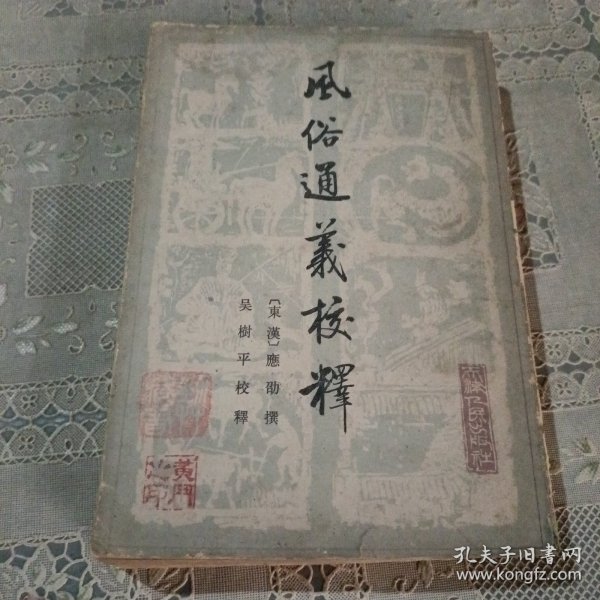 風俗通義校釋
〔東漢〕應劭撰
吴樹平校釋
天津人民出版社
黃門
孔夫子旧书网
www.kongfz.com